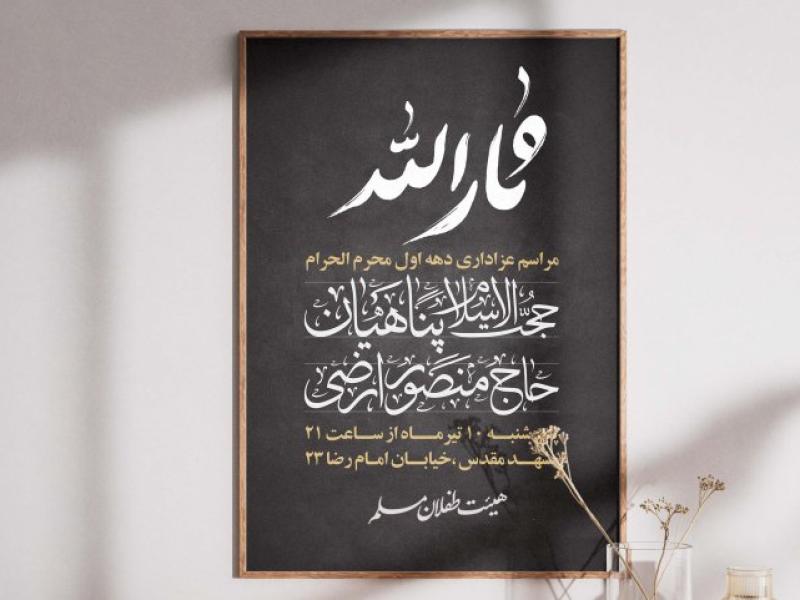 ثارالله
مراسم عزاداری دهه اول محرم الحرام
حجت الاسلام پناهیان
حاج منصور ارضی
۱۰ تیر ماه از ساعت ۲۱
مشهد مقدس ،خیابان امام رضا ۲۳
هیئت طفلان مسلم